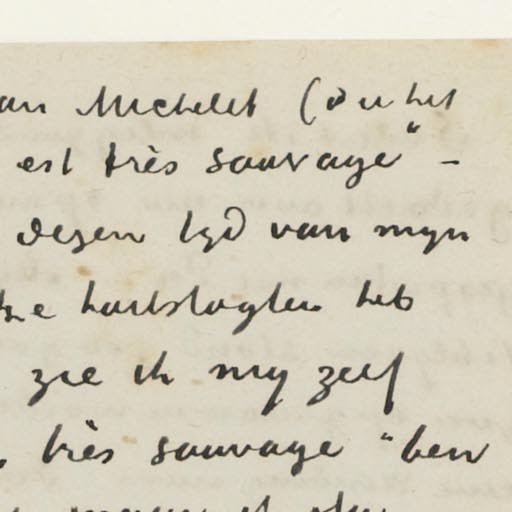 an Michelet (du het
est très sauvage" –
dezen tyd van myn
hartstogten heb
zie ik my zelf
très sauvage" ben